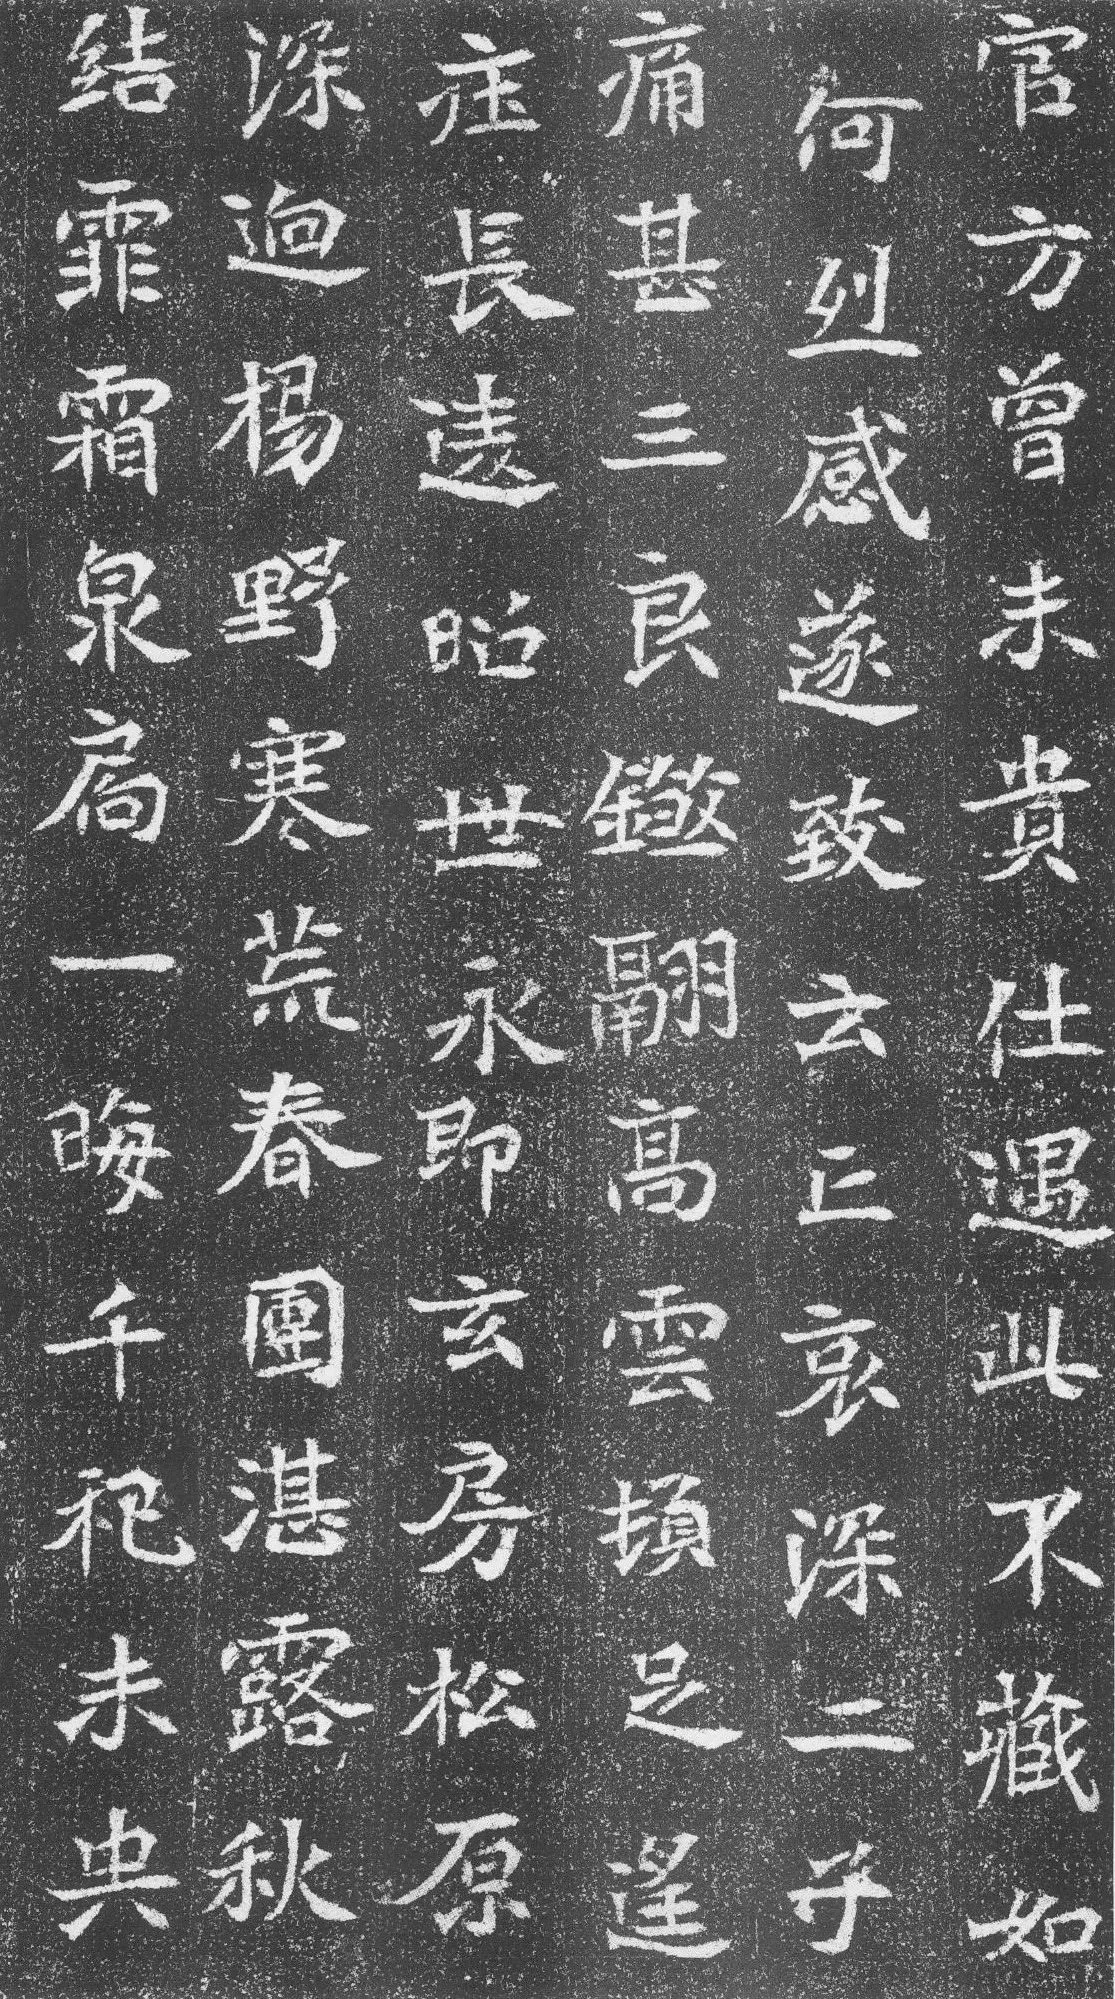 官方曾未貴仕遇此不藏如
何迾感遂致云亡哀深二子
痛甚三良鎩翮高雲頓足遥
庄長違昭世永即玄房松原
深迥楊野寒荒春團湛露秋
結霏霜泉扃一晦千祀未央